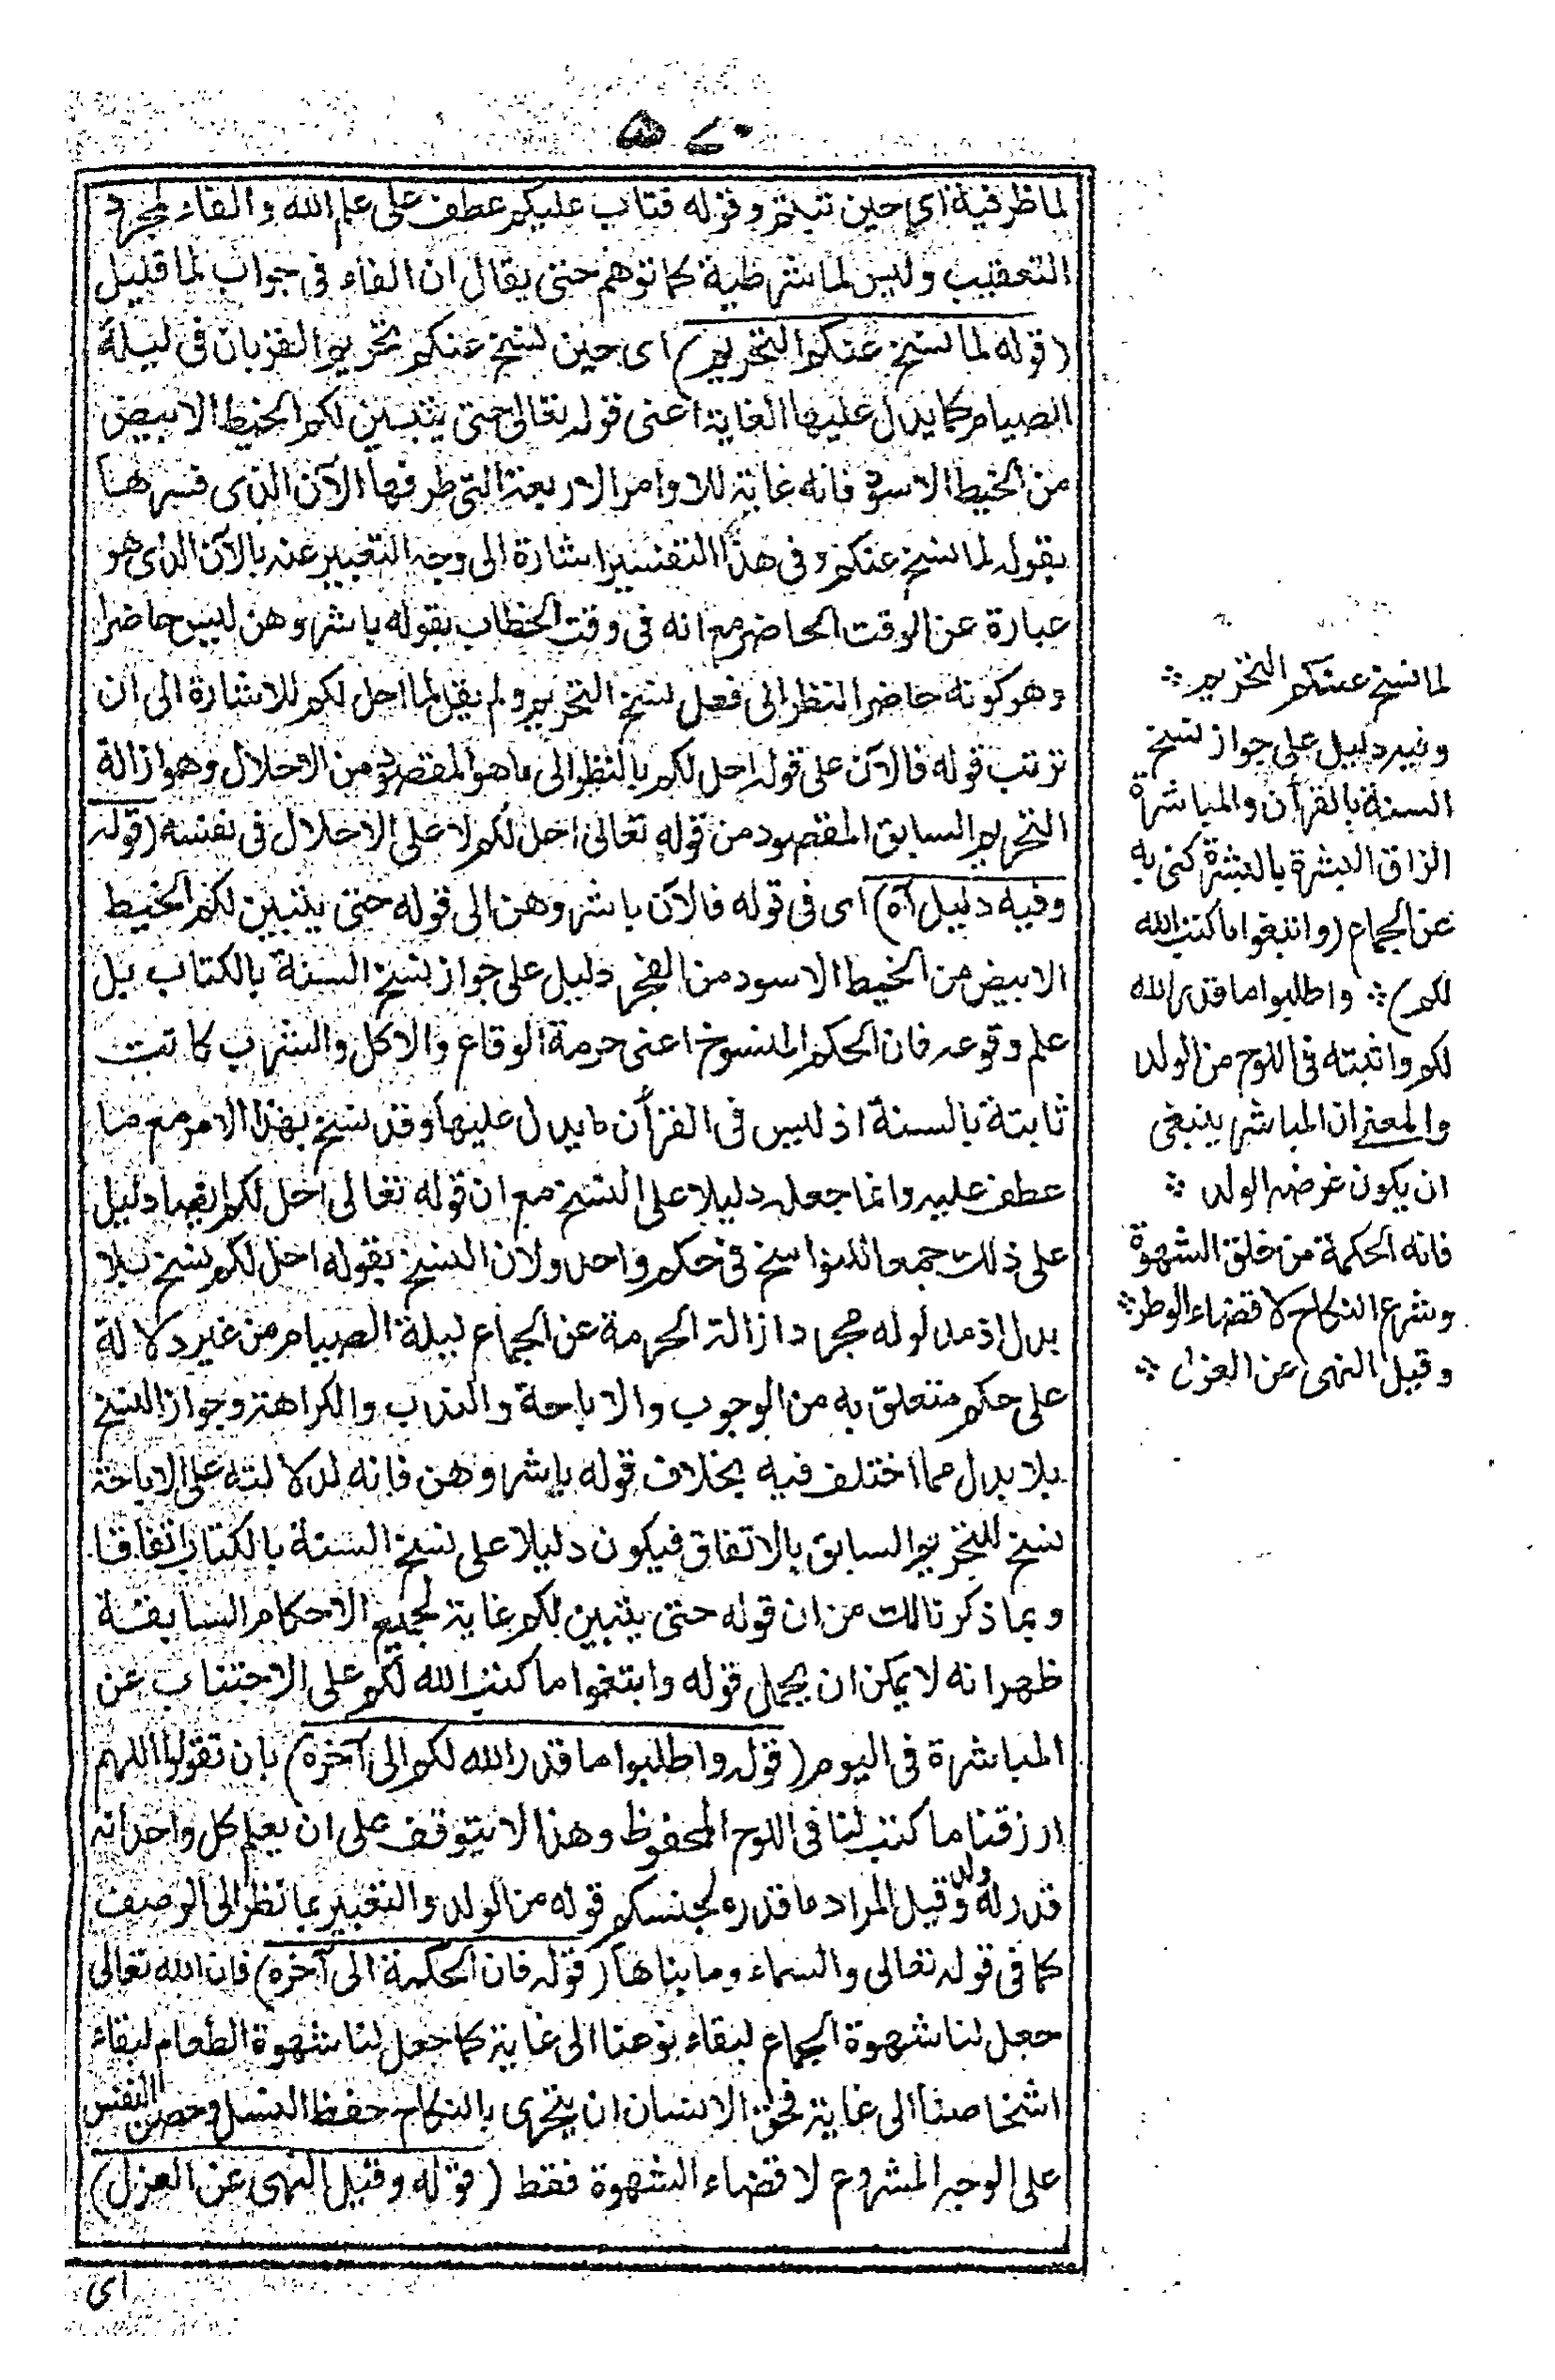 ٥٧٠
لما ظرفية اى حين تبتم وقوله فتاب عليكم عطف على علم الله والفاء لمجرد
التعقيب وليس لما شرطية كما توهم حتى يقال ان الفاء فى جواب لما قليل
(قوله لما نسخ عنكم التحريم) اى حين نسخ عنكم تحريم القربان فى ليلة
الصيام كما يدل عليها الغاية اعنى قوله تعالى حتى يتبين لكم الخيط الابيض
من الخيط الاسود فانه غاية للاوامر الاربعة التى ظرفها الآن الذى فسر هنا
بقوله لما نسخ عنكم وفى هذا التفسير اشارة الى وجه التعبير عنه بالآن الذى هو
عبارة عن الوقت الحاضر مع انه فى وقت الخطاب بقوله باشروهن ليس حاضرا
وهو كونه حاضرا النظر الى فعل نسخ التحريم ولم يقل لما احل لكم للاشارة الى ان
ترتب قوله فالآن على قوله احل لكم بالنظر الى ما هو المقصود من الاحلال وهو ازالة
التحريم السابق المقصود من قوله تعالى احل لكم لا على الاحلال فى نفسه (قوله
وفيه دليل آه) اى فى قوله فالآن باشروهن الى قوله حتى يتبين لكم الخيط
الابيض من الخيط الاسود من الفجر دليل على جواز نسخ السنة بالكتاب بل
علم وقوعه فان الحكم المنسوخ اعنى حرمة الوقاع والاكل والشرب كانت
ثابتة بالسنة اذ ليس فى القرآن ما يدل عليها وقد نسخ بهذا الامر مع ما
عطف عليه وانما جعله دليلا على النسخ مع ان قوله تعالى احل لكم ايضا دليل
على ذلك جمعا للنواسخ فى حكم واحد ولان النسخ بقوله احل لكم نسخ بلا
بدل اذ مدلوله مجرد ازالة الحرمة عن الجماع ليلة الصيام من غير دلالة
على حكم متعلق به من الوجوب والاباحة والندب والكراهة وجواز النسخ
بلا بدل مما اختلف فيه بخلاف قوله باشروهن فانه لدلالته على الاباحة
نسخ للتحريم السابق بالاتفاق فيكون دليلا على نسخ السنة بالكتاب اتفاقا
وبما ذكرنا لك من ان قوله حتى يتبين لكم غاية لجميع الاحكام السابقة
ظهر انه لا يمكن ان يحمل قوله وابتغوا ما كتب الله لكم على الاجتناب عن
المباشرة فى اليوم (قوله واطلبوا ما قدر الله لكم الى آخره) بان تقولوا اللهم
ارزقنا ما كتبت لنا فى اللوح المحفوظ وهذا لا يتوقف على ان يعلم كل واحد انه
قدر له ولد وقيل المراد ما قدره لجنسكم قوله من الولد والتعبير بما نظرا الى الوصف
كما فى قوله تعالى والسماء وما بناها (قوله فان الحكمة الى آخره) فان الله تعالى
جعل لنا شهوة الجماع لبقاء نوعنا الى غاية كما جعل لنا شهوة الطعام لبقاء
اشخاصنا الى غاية فحق الانسان ان يتحرى بالنكاح حفظ النسل وحصن النفس
على الوجه المشروع لا قضاء الشهوة فقط (قوله وقيل النهى عن العزل)
اى
لما نسخ عنكم التحريم
وفيه دليل على جواز نسخ
السنة بالقرأن والمباشرة
الزاق البشرة بالبشرة كنى به
عن الجماع (وابتغوا ما كتب الله
لكم) واطلبوا ما قدر الله
لكم واثبته فى اللوح من الولد
والمعنى ان المباشر ينبغى
ان يكون غرضه الولد
فانه الحكمة من خلق الشهوة
وشرع النكاح لا قضاء الوطر
وقيل النهى عن العزل